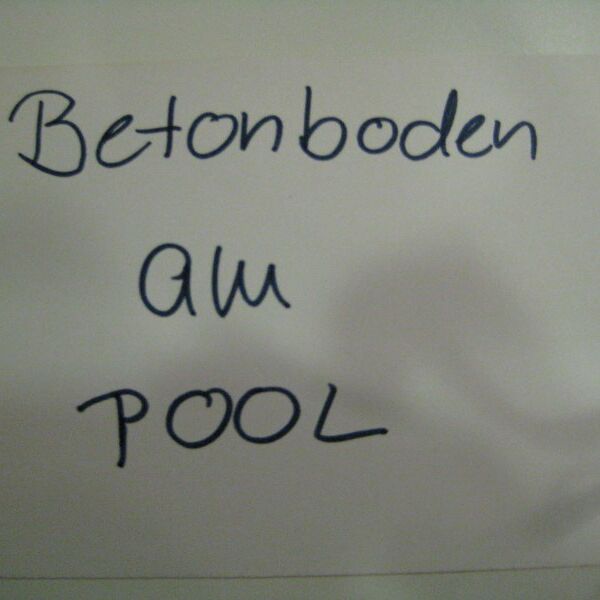 Betonboden
am
POOL